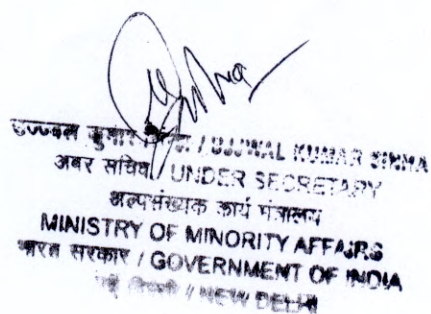 उज्जवल कुमार / UJJWAL KUMAR SINHA
अवर सचिव / UNDER SECRETARY
अल्पसंख्यक कार्य मंत्रालय
MINISTRY OF MINORITY AFFAIRS
भारत सरकार / GOVERNMENT OF INDIA
नई दिल्ली / NEW DELHI